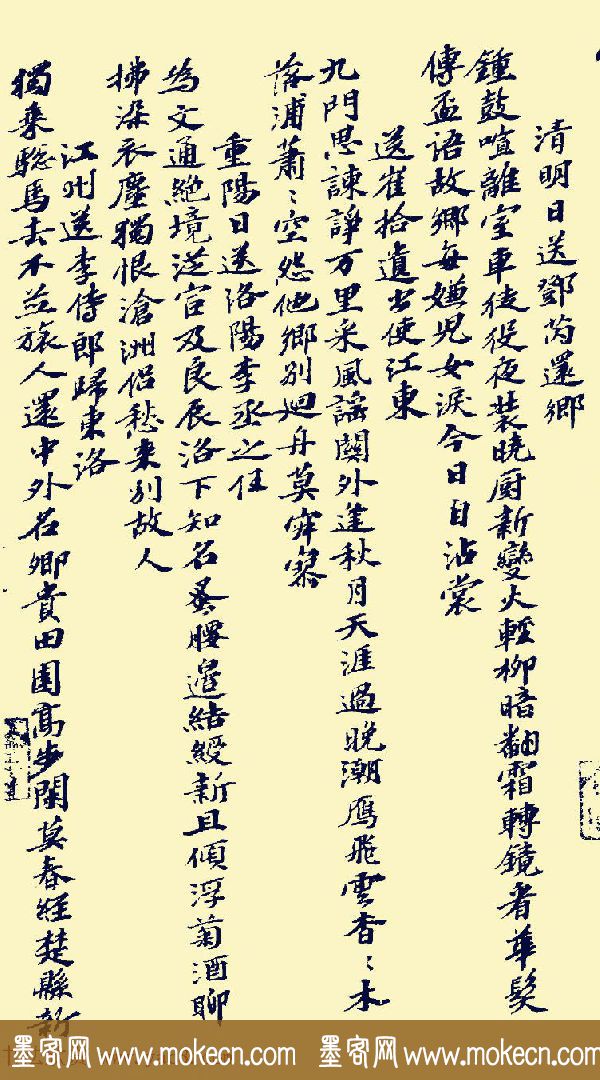 清明日送鄧芮還鄉
鍾鼓喧離室車徒役夜裝曉厨新變火輕柳暗翻霜轉鏡看華髮
傳盃語故鄉每嫌兒女淚今日自沾裳
送崔拾遺出使江東
九門思諫諍万里采風謠關外逢秋月天涯過晚潮鴈飛雲杳〻木
落浦蕭〻空怨他鄉別迴舟莫寂寥
重陽日送洛陽李丞之任
為文通絕境從官及良辰洛下知名蚤腰邊結綬新且傾浮菊酒聊
拂染衣塵獨恨滄洲侶愁來別故人
江州送李侍郎歸東洛
獨乘驄馬去不並旅人還中外名卿貴田園高步閑莫春經楚縣新
墨客网 www.mokecn.com 墨客网 www.mokecn.com